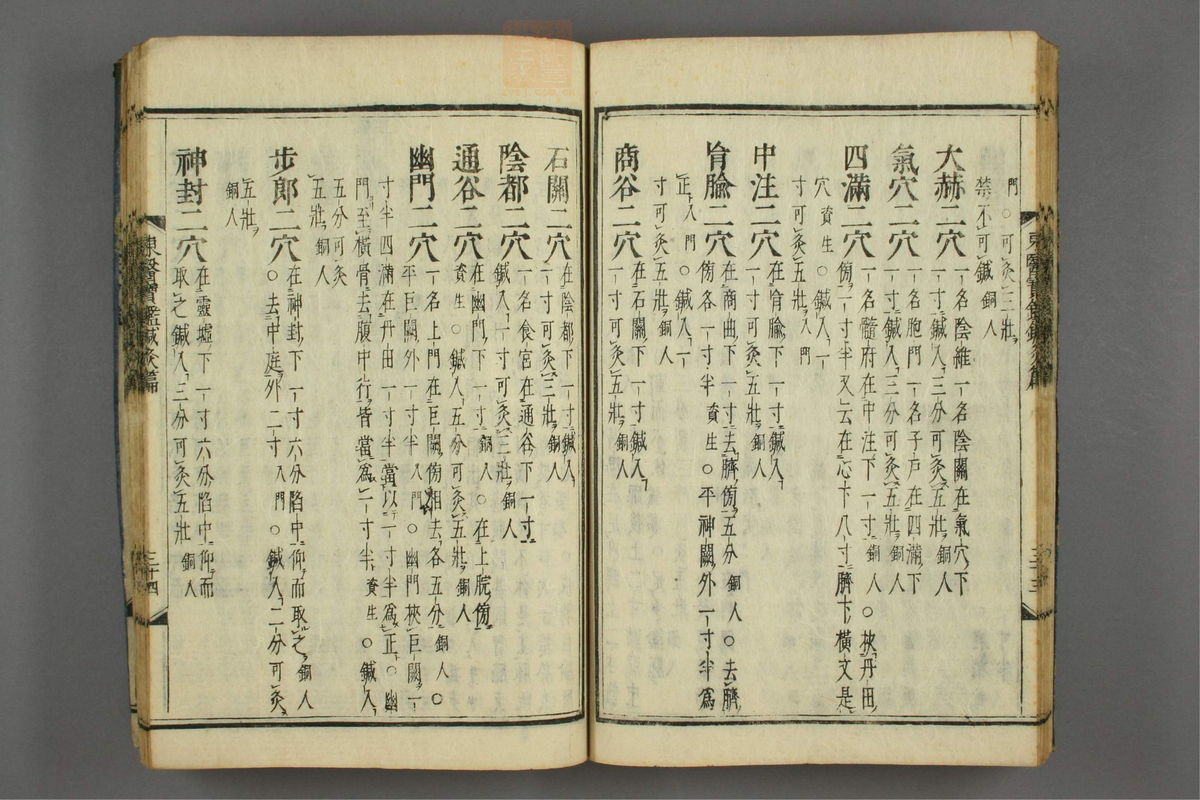 門○可灸三壯
禁不可鍼銅人
大赫二穴一名陰維一名陰關在氣穴下
一寸鍼入三分可灸五壯銅人
氣穴二穴一名胞門一名子戶在四滿下
一寸鍼入三分可灸五壯銅人
四滿二穴一名髓府在中注下一寸銅人○挾丹田
傍一寸半又云在心下八寸臍下橫文是
穴資生○鍼入一
寸可灸五壯入門
中注二穴在肓腧下一寸鍼入
一寸可灸五壯銅人
肓腧二穴在商曲下一寸去臍傍五分銅人○去臍
傍各一寸半資生○平神闕外一寸半爲
正入門○鍼入一
寸可灸五壯銅人
商谷二穴在石關下一寸鍼入
一寸可灸五壯銅人
東醫寶鑑鍼灸篇
三十三
石關二穴在陰都下一寸鍼入
一寸可灸三壯銅人
陰都二穴一名食宮在通谷下一寸
鍼入一寸可灸三壯銅人
通谷二穴在幽門下一寸銅人○在上脘傍
資生○鍼入五分可灸五壯銅人
幽門二穴一名上門在巨闕傍相去各五分銅人○
平巨闕外一寸半入門○幽門挾巨闕一
寸半四滿在丹田一寸半當以一寸半爲正○幽
門至橫骨去腹中行皆當爲一寸半資生○鍼入
五分可灸
五壯銅人
步郎二穴在神封下一寸六分陷中仰而取之銅人
○去中庭外二寸入門○鍼入二分可灸
五壯
銅人
神封二穴在靈墟下一寸六分陷中仰而
取之鍼入三分可灸五壯銅人
東醫寶鑑鍼灸篇
三十四